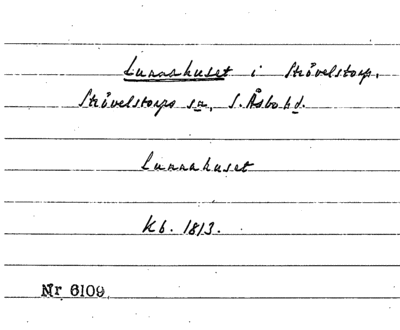 Lunnahuset i Strövelstorp,
Strövelstorps sn, S. Åsbo hd.
Lunnahuset
Kb. 1813.
Nr 6109